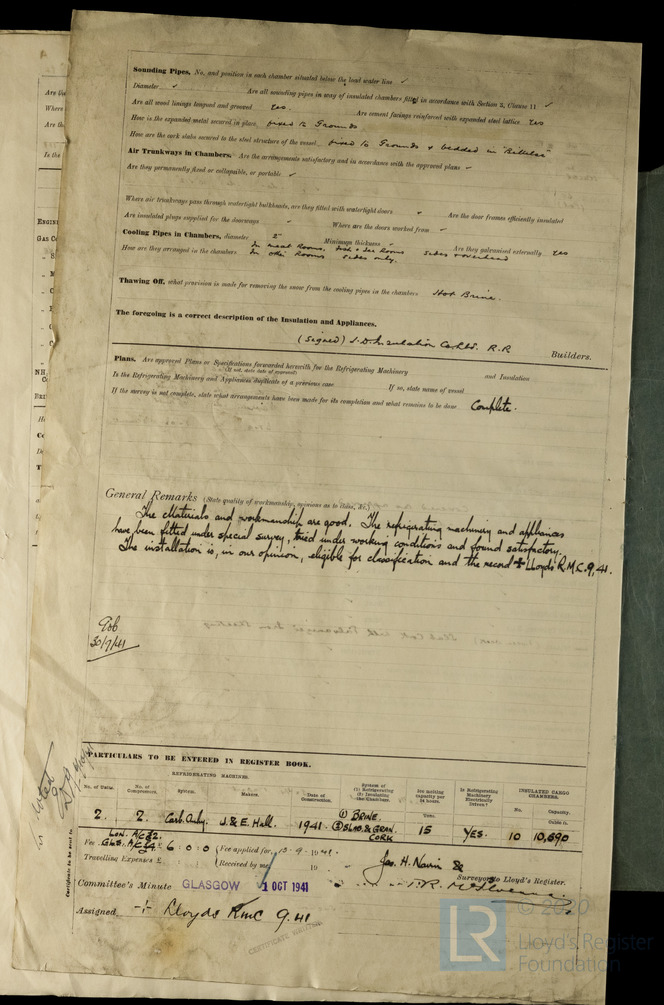 Sounding Pipes, No. and position in each chamber situated below the load water line ✓
Diameter ✓ Are all sounding pipes in way of insulated chambers fitted in accordance with Section 3, Clause 11 ✓
Are all wood linings tongued and grooved Yes. Are cement facings reinforced with expanded steel lattice Yes
How is the expanded metal secured in place, fixed to Grounds
How are the cork slabs secured to the steel structure of the vessel fixed to Grounds & bedded in
Air Trunkways in Chambers, Are the arrangements satisfactory and in accordance with the approved plans ✓
Are they permanently fixed or collapsible, or portable ✓
Where air trunkways pass through watertight bulkheads, are they fitted with watertight doors ✓ Are the door frames efficiently insulated
Are insulated plugs supplied for the doorways ✓ Where are the doors worked from ✓
Cooling Pipes in Chambers, diameter 2" Minimum thickness ✓ Are they galvanised externally Yes
How are they arranged in the chambers In meat Rooms, Rooms sides & overhead
In other Rooms sides only.
Thawing Off, what provision is made for removing the snow from the cooling pipes in the chambers Hot Brine.
The foregoing is a correct description of the Insulation and Appliances.
(Signed) J.D. Insulation Co Ltd. R.R Builders.
Plans. Are approved Plans or Specifications forwarded herewith for the Refrigerating Machinery and Insulation
(If not, state date of approval)
Is the Refrigerating Machinery and Appliances duplicate of a previous case If so, state name of vessel
If the survey is not complete, state what arrangements have been made for its completion and what remains to be done Complete.
General Remarks (State quality of workmanship, opinions as to class, &c.)
The Materials and workmanship are good. The refrigerating machinery and appliances
have been fitted under special survey, tried under working conditions and found satisfactory.
The installation is, in our opinion, eligible for classification and the record + Lloyds R.M.C. 9,41.
30/9/41
PARTICULARS TO BE ENTERED IN REGISTER BOOK.
REFRIGERATING MACHINES.
No. of Units. No. of Compressors. System. Makers. Date of Construction. System of (1) Refrigerating (2) Insulating the Chambers. Ice melting capacity per 24 hours. Is Refrigerating Machinery Electrically Driven? INSULATED CARGO CHAMBERS.
Tons. No. Capacity. Cubic ft.
2. 2. Carb. Anhy. J. & E. Hall. 1941 (1) BRINE. (2) SLAB, & GRAN. CORK 15 YES. 10 10,690
LON. A/C £2.
Fee GLS. A/C £4. 6 . 0 . 0 (Fee applied for, 19
Travelling Expenses £ (Received by me, 19
Jas. H. Nairn &
Surveyors to Lloyd's Register.
Committee's Minute GLASGOW 1 OCT 1941
Assigned + Lloyds RMC 9.41
Certificate to be sent to
noted
CERTIFICATE WRITTEN
LR
© 2020
Lloyd's Register
Foundation